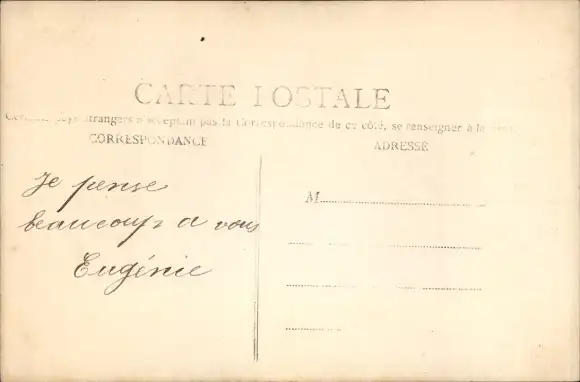 CARTE POSTALE
pays étrangers n'acceptant pas la Correspondance de ce côté, se renseigner à la
CORRESPONDANCE
ADRESSE
Je pense
beaucoup a vous
Eugénie
M